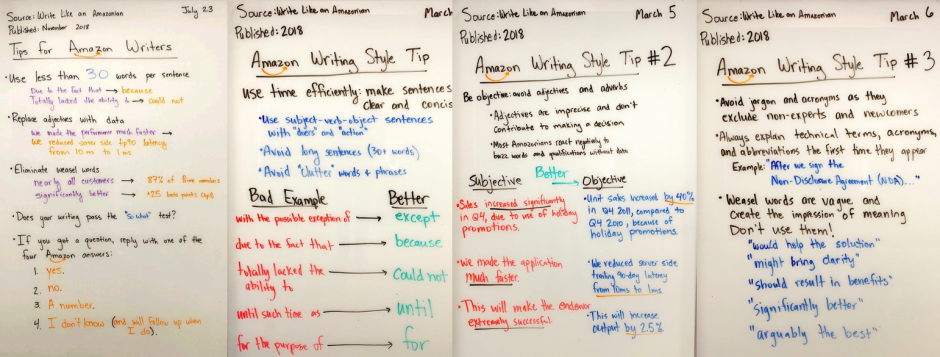 Source: Write Like an Amazonian
July 23
Published: November 2018
Tips for Amazon Writers
• Use less than 30 words per sentence
Due to the fact that → because
Totally lacked the ability to → could not
• Replace adjectives with data
We made the performance much faster →
We reduced server side tp90 latency
from 10 ms to 1 ms
• Eliminate weasel words
nearly all customers → 87% of Prime members
significantly better → +25 basis points
• Does your writing pass the "so what" test?
• If you get a question, reply with one of the
four Amazon answers:
1. yes.
2. no.
3. A number.
4. I don't know (and will follow up when
I do).
Source: Write Like an Amazonian
March
Published: 2018
Amazon Writing Style Tip
Use time efficiently: make sentences
clear and concis
• Use subject-verb-object sentences
with "doers" and "action"
• Avoid long sentences (30+ words)
• Avoid "Clutter" words + phrases
Bad Example → Better
with the possible exception of → except
due to the fact that → because
totally lacked the
ability to → Could not
until such time as → until
for the purpose of → for
Source: Write Like an Amazonian
March 5
Published: 2018
Amazon Writing Style Tip #2
Be objective: avoid adjectives and adverbs
• Adjectives are imprecise and don't
contribute to making a decision
• Most Amazonians react negatively to
buzz words and qualifications without data
Subjective Better → Objective
• Sales increased significantly
in Q4, due to use of holiday
promotions.
• Unit sales increased by 40%
in Q4 2011, compared to
Q4 2010, because of
holiday promotions.
• We made the application
much faster.
• We reduced server side
trailing 90-day latency
from 10ms to 1ms.
• This will make the endeavor
extremely successful
• This will increase
output by 25%
Source: Write Like an Amazonian
March 6
Published: 2018
Amazon Writing Style Tip #3
• Avoid jargon and acronyms as they
exclude non-experts and newcomers
• Always explain technical terms, acronyms,
and abbreviations the first time they appear
Example: "After we sign the
Non-Disclosure Agreement (NDA)..."
• Weasel words are vague and
Create the impression of meaning
Don't use them!
"would help the solution"
"might bring clarity"
"should result in benefits"
"significantly better"
"arguably the best"